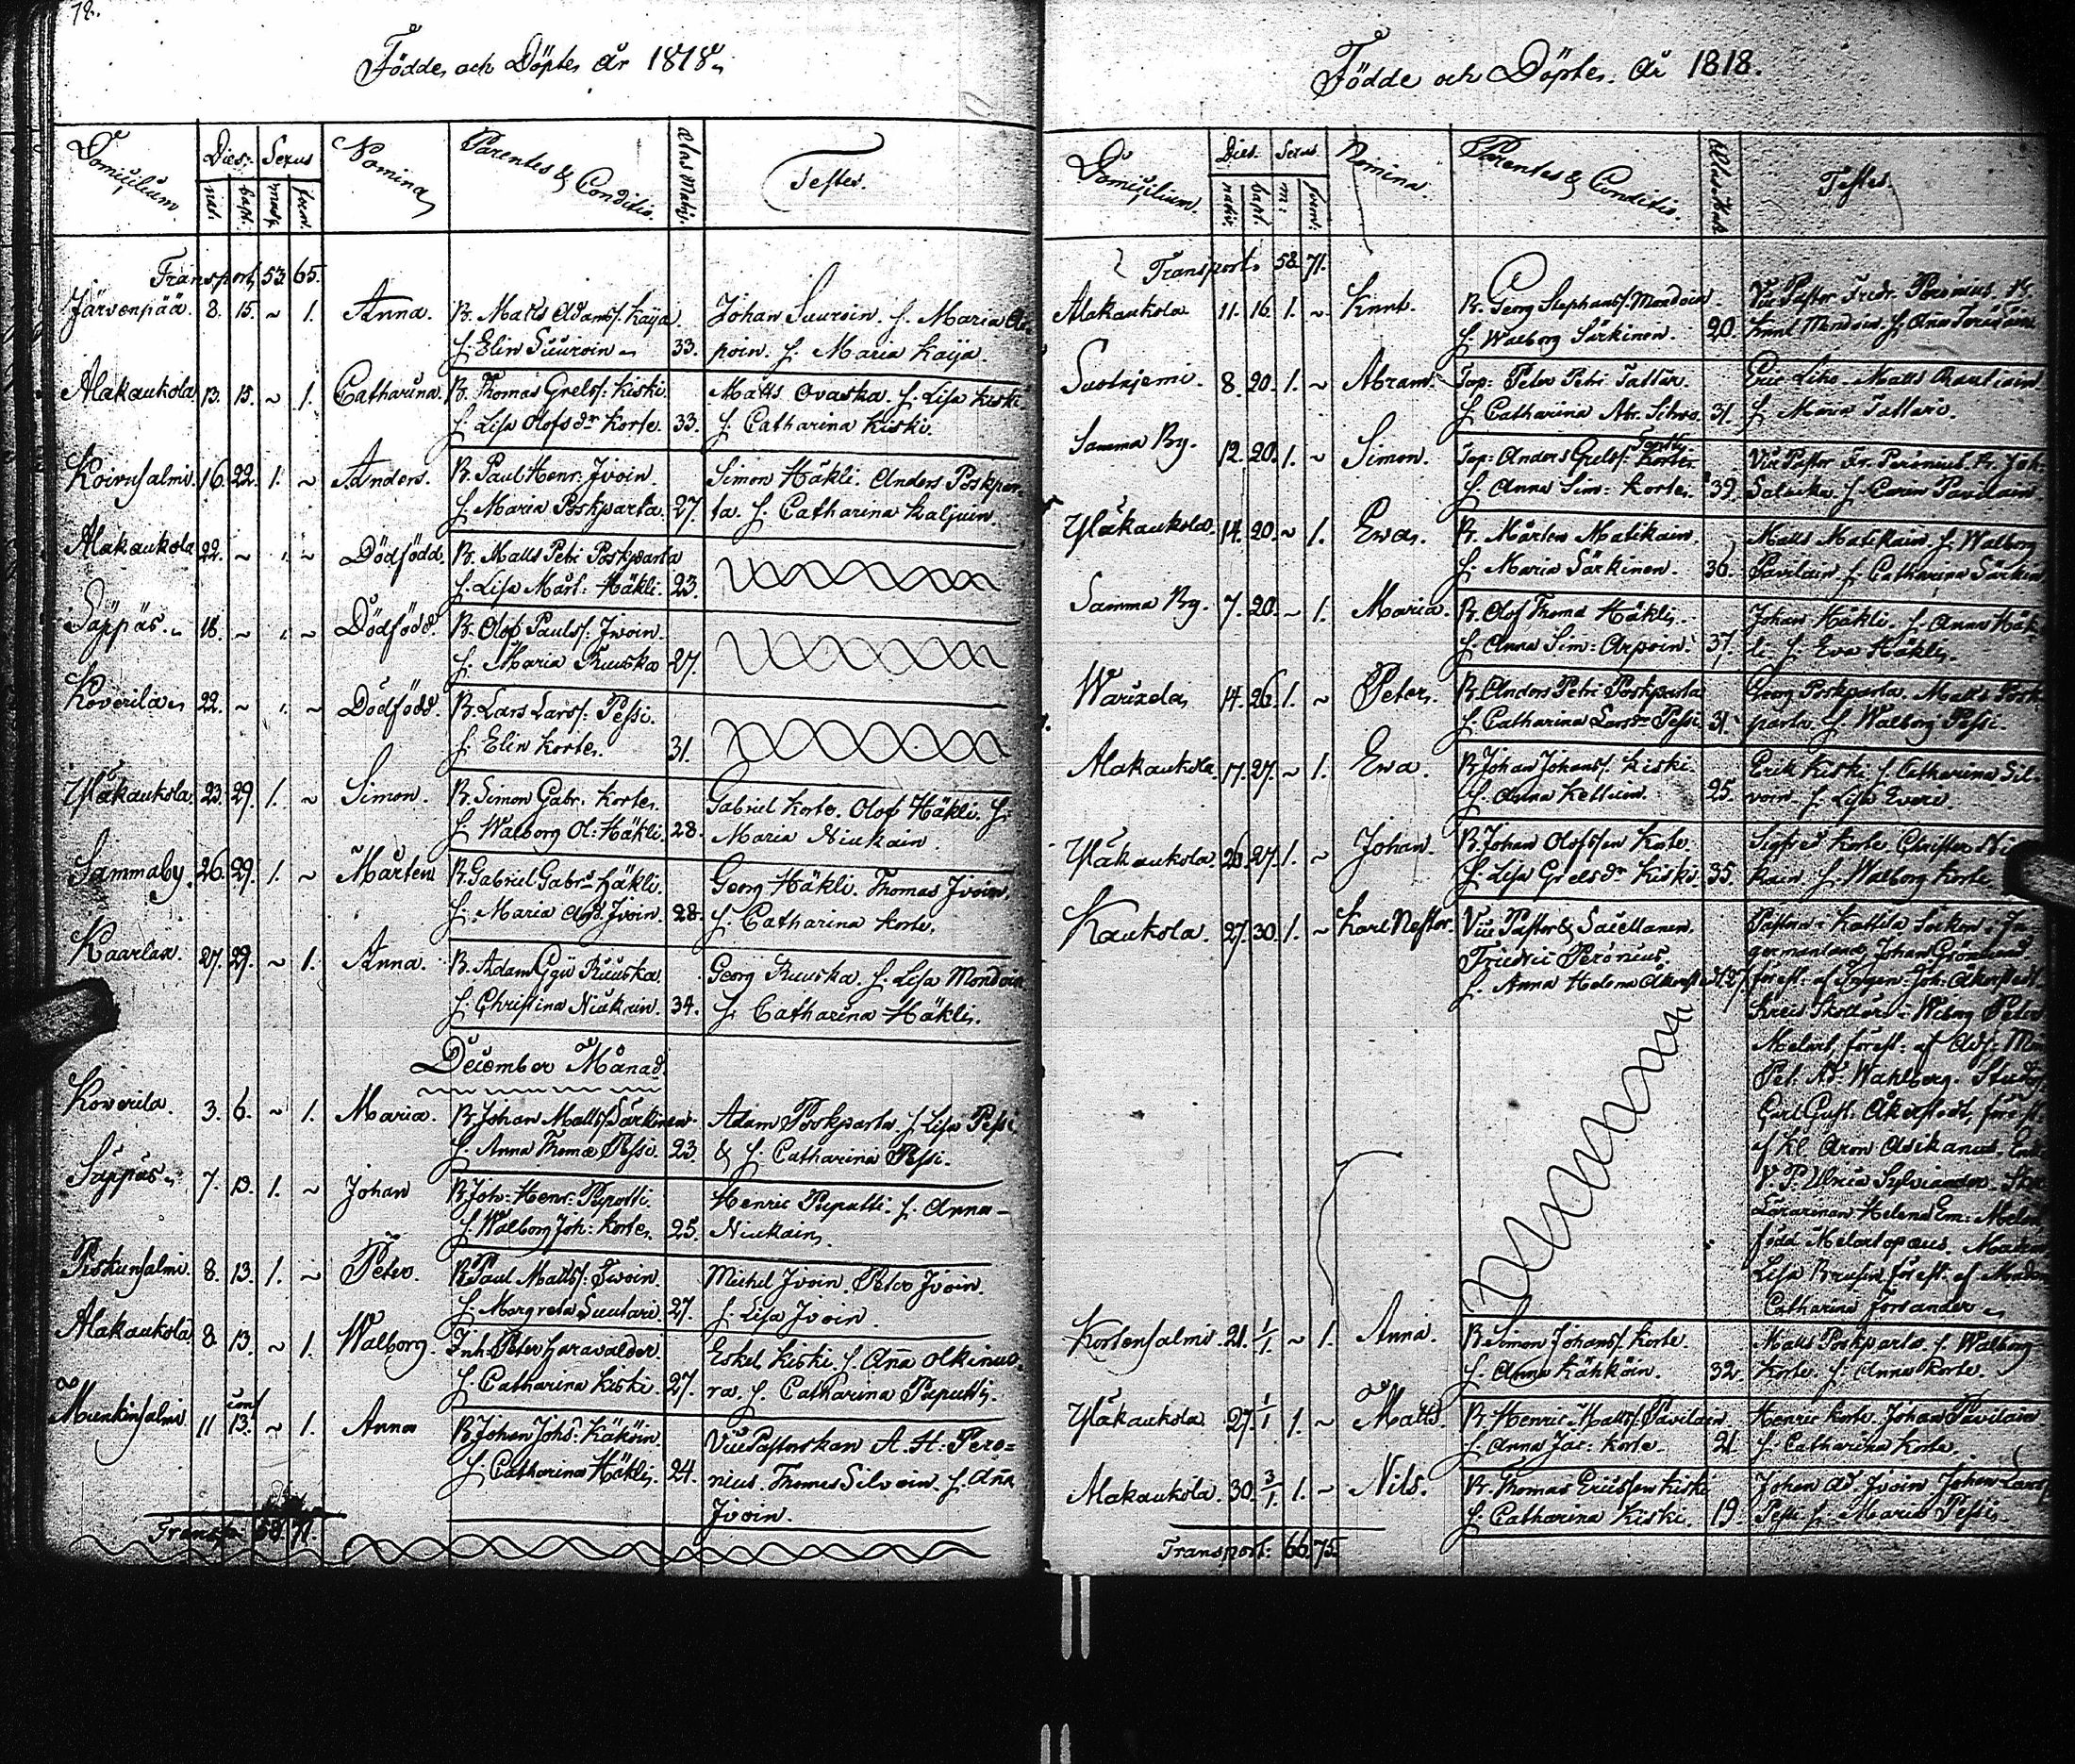 72.
Födde och Döpte År 1818.
Domicilium. Dies: Sexus Nomina Parentes & Conditio. Testes.
nat. bapt. mask. fæm.
Transport, 53 65.
Järvenpää 8. 15. ~ 1. Anna. B. Matts Adamsf. Kaya.
H. Elin Suuroin 33.
Johan Suuroin. H. Maria
poin. H. Maria Kaija.
Alakaukola 13. 15. ~ 1. Catharina. B. Thomas Grelsf. Kiski.
H. Lisa Olofsdr Korte. 33.
Matts Ovaska. H. Lisa Kiski.
H. Catharina Kiski.
Koirnsalmi 16. 22. 1. ~ Anders. B. Paul Henr: Ivoin.
H. Maria Poskparta. 27.
Simon Häkli. Anders Poskpar-
ta. H. Catharina Kaljuin.
Alakaukola 22. ~ ~ Dödfödd. B. Matts Petri Poskparta
H. Lisa Mårt: Häkli. 23.
Säppäs. 18. ~ ~ Dödfödd. B. Olof Paulsf: Ivoin.
H. Maria Ruuska 27.
Koverila 22. ~ ~ Dödfödd. B. Lars Larsf: Pessi.
H. Elin Korte. 31.
Yläkaukola. 23. 29. 1. ~ Simon. B. Simon Gabr. Korte.
H. Walborg Ol: Häkli. 28.
Gabriel Korte. Olof Häkli. H.
Maria Niukain.
Sammaby. 26. 29. 1. ~ Mårten B. Gabriel Gabrs Häkli.
H. Maria And. Ivoin. 28.
Georg Häkli. Thomas Ivoin.
H. Catharina Korte.
Kaarlax. 27. 29. ~ 1. Anna. B. Adam Ruuska.
H. Christina Niukain. 34.
Georg Ruuska. H. Lisa Mondoin
H. Catharina Häkli.
December Månad.
Koverila. 3. 6. ~ 1. Maria. B. Johan Mattsf Särkinen.
H. Anna Thomæ Pessi. 23.
Adam Poskparta. H. Lisa Pessi
& H. Catharina Pessi.
Säppäs 7. 13. 1. ~ Johan B. Joh: Henr: Paputti.
H. Walborg Joh: Korte. 25.
Henric Paputti. H. Anna
Niukain.
Piskunsalmi. 8. 13. 1. ~ Peter. B. Paul Mattsf: Ivoin.
H. Margreta Suutari. 27.
Michel Ivoin. Peter Ivoin.
H. Lisa Ivoin.
Alakaukola. 8. 13. ~ 1. Walborg. Inh. Peter Haravalder.
H. Catharina Kiski. 27.
Eskel Kiski. H. Aña Olkinuo-
ra. H. Catharina Paputti.
Munkinsalmi. 11 13. ~ 1. Anna B. Johan Johs: Käköin.
H. Catharina Häkli. 24.
Vice Pastorskan A. H. Pero=
nius. Thomas Silvoin. H. Aña
Ivoin.
Transp. 58 71.
Födde och Döpte. År 1818.
Domicilium. Dies. Sexus Nomina. Parentes & Conditio. Testes.
Transport. 58 71.
Alakaukola 11. 16. 1. ~ Knut. B. Georg Stephansf. Mondoin
H. Walborg Särkinen. 20.
Vice Pastor Fredr. Peronius. B.
Knut Mondoin. H. Aña
8. 20. 1. ~ Abram. Peter Petri Tattar.
H. Catharina Abr. 31.
Eric Matts
H. Maria Tattari.
Samma By. 12. 20. 1. ~ Simon. Anders Grelsf:
H. Anna Sim: Korte. 39.
Vice Pastor Fr. Peronius. B. Joh.
H. Carin Pavilain
Yläkaukola. 14. 20. ~ 1. Ewa. B. Mårten Matikain.
H. Maria Särkinen. 36.
Matts Matikain. H. Walborg
Pavilain H. Catharina Särkin
Samma By. 7. 20. ~ 1. Maria. B. Olof Thomæ Häkli.
H. Anna Sim: Arpoin. 37.
Johan Häkli. H. Anna Häk
li H. Eva Häkli.
14. 26. 1. ~ Peter. B. Anders Petri Poskparta
H. Catharina Larsdr Pessi 31.
Georg Poskparta. Matts Posk
parta. H. Walborg Pessi.
Alakaukola 17. 27. ~ 1. Ewa. B. Johan Johansf. Kiski.
H. Anna 25.
Erik Kiski H. Catharina Sil-
voin. H. Lisa
Yläkaukola. 26. 27. 1. ~ Johan. B. Johan Olofsson Korte.
H. Lisa Grelsdr Kiski. 35.
Sigfrid Korte. Christer Ni
kain. H. Walborg Korte.
Kaukola. 27. 30. 1. ~ Karl Nestor. Vice Pastor & Sacellanen.
Friedric Peronius.
H. Anna Helena Åkerstedt 27.
Kattila Socken i In-
germanland Johan Grönlund
förest: af Joh: Åkerstedt.
Wiborg Peter
Melart, förest: af
Pet. Ad: Wahlberg.
Carl Gust: Åkerstedt, förest:
af Aron
V. P. Ulrica Sylviander.
Lärarinnan Helena Em: Melart
född Melartopæus.
Lisa förest. af
Catharina Forsander
Kortensalmi 21. 1/1 ~ 1. Anna. B. Simon Johansf. Korte.
H. Anna Kähköin. 32.
Matts Poskparta. H. Walborg
Korte. H. Anna Korte.
Yläkaukola 27. 1/1 1. ~ Matts. B. Henric Mattsf. Pavilain
H. Anna Jac: Korte. 21.
Henric Korte. Johan Pavilain
H. Catharina Korte.
Alakaukola. 30. 3/1. 1. ~ Nils. B. Thomas Ericsson Kiski
H. Catharina Kiski. 19.
Johan Ad. Ivoin Johan Lars
Pessi H. Maria Pessi.
Transport: 66. 75.